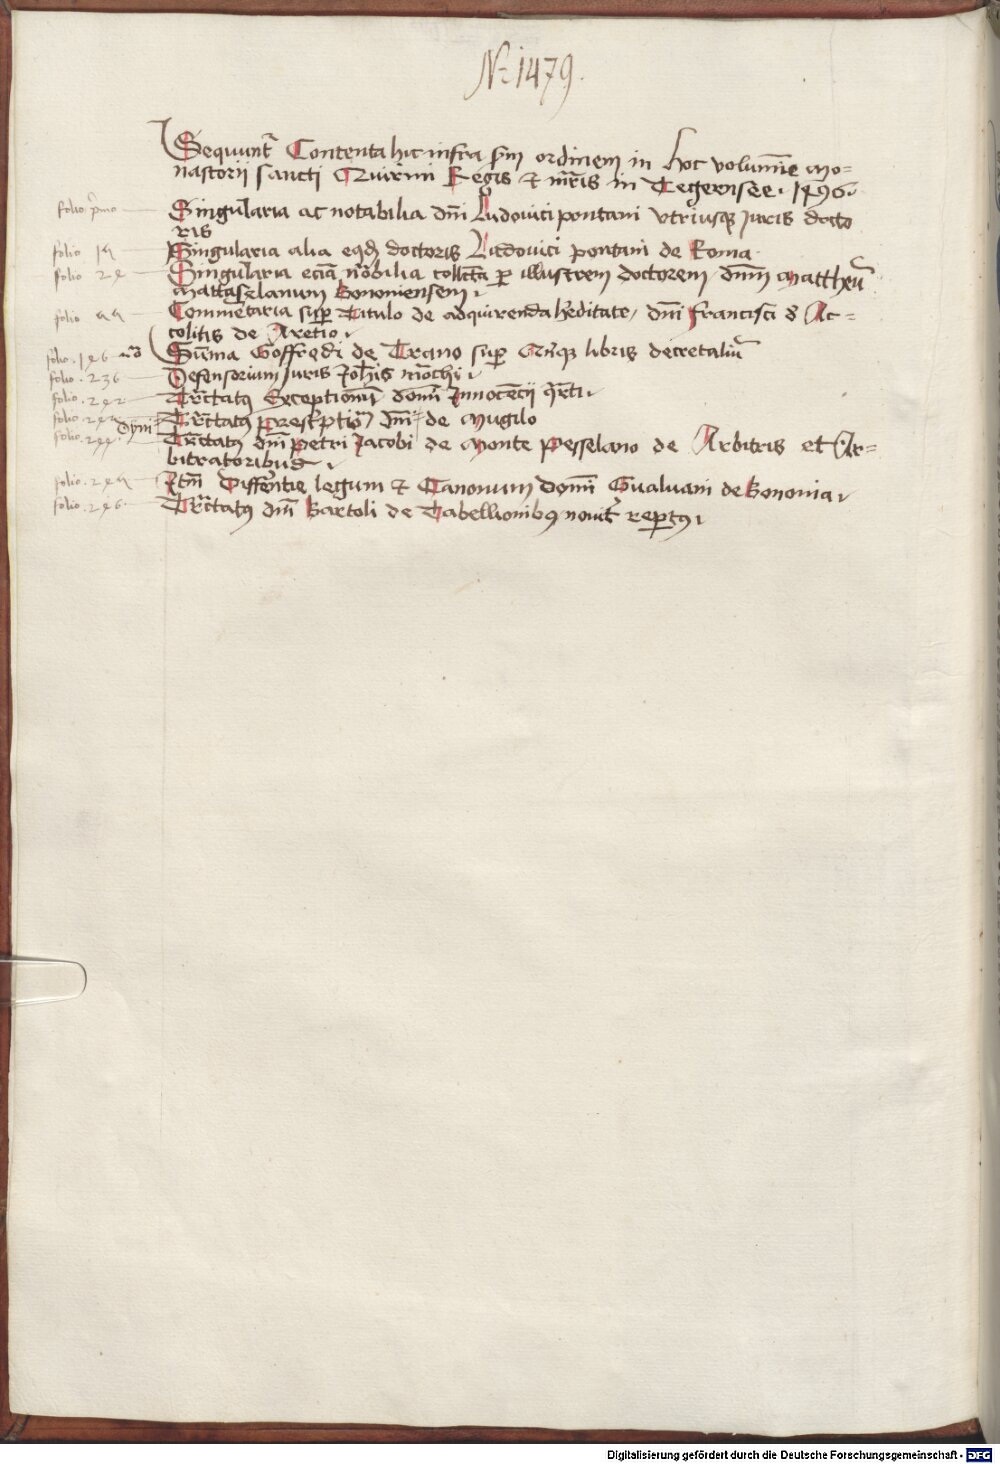 Nr 1479.
Sequunt̃ Contenta hic infra scdm ordinem in hoc volumīe mo=
nasterii sancti Quirini Regis et m̃ris in Tegernsee. 1496.
folio primo Singularia ac notabilia dn̄i Ludouici pontani vtriusq Juris docto
ris
folio Singularia alia eiusd doctoris Ludouici pontani de Roma.
folio Singularia eciā nōbilia collecta per illustrem doctorem dnm̄ Mattheū
Mattaselanum Bononiensem
folio Commētaria suꝑ Titulo de adquirenda hereditate, dn̄i francisci de Ac=
coltis de Aretio
folio. 186 Sūma Goffredi de Trano suꝑ Quīqȝ libris decretaliū
folio. 236 Defensorium Juris Joh̄is mōchi
folio. 282 Tractatus Exceptionū domī Innocēcii quarti
folio. Tractatus prescriptionū dn̄i Dyni de Mugilo
folio. Tractatus dn̄i petri Jacobi de Monte pesselano de Arbitris et Ar=
bitratoribus
folio. Itm̄ Differentie legum et Canonum domī Gualuani de Bononia
folio. 286. Tractatus dn̄i Bartoli de Tabellionibus nouit̃ repertus
Digitalisierung gefördert durch die Deutsche Forschungsgemeinschaft - DFG